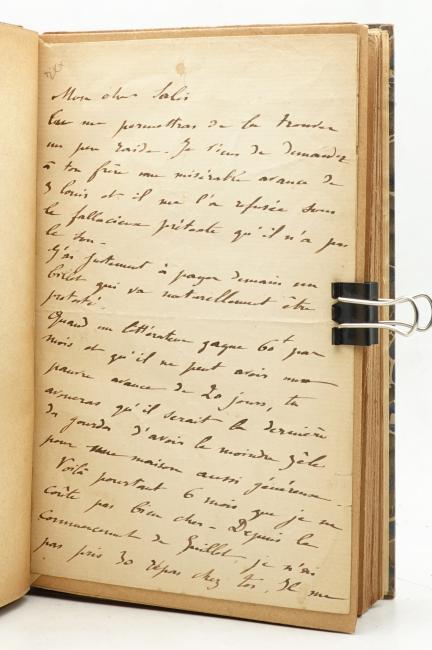 Mon cher Salis
Tu me permettras de la trouver
un peu raide. Je viens de demander
à ton frère une misérable avance de
3 louis et il me l'a refusée sous
le fallacieux prétexte qu'il n'a pas
le sou.
J'ai justement à payer demain un
billet qui va naturellement être
protesté.
Quand un littérateur gagne 60 f par
mois et qu'il ne peut avoir une
pauvre avance de 20 jours, tu
avoueras qu'il serait le dernier
des gourdes d'avoir le moindre zèle
pour une maison aussi généreuse.
Voilà pourtant 6 mois que je ne
coûte pas bien cher – Depuis le
commencement de Juillet je n'ai
pas pris 30 repas chez toi. Il me